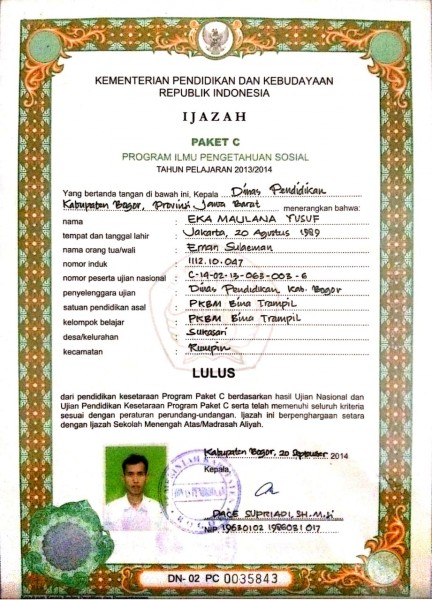 KEMENTERIAN PENDIDIKAN DAN KEBUDAYAAN
REPUBLIK INDONESIA
IJAZAH
PAKET C
PROGRAM ILMU PENGETAHUAN SOSIAL
TAHUN PELAJARAN 2013/2014
Yang bertanda tangan di bawah ini, Kepala Dinas Pendidikan
Kabupaten Bogor, Provinsi Jawa Barat menerangkan bahwa:
nama : EKA MAULANA YUSUF
tempat dan tanggal lahir : Jakarta, 20 Agustus 1989
nama orang tua/wali : Eman Sulaeman
nomor induk : 1112.10.047
nomor peserta ujian nasional : C-14-02-13-063-003-6
penyelenggara ujian : Dinas Pendidikan Kab. Bogor
satuan pendidikan asal : PKBM Bina Trampil
kelompok belajar : PKBM Bina Trampil
desa/kelurahan : Sukasari
kecamatan : Rumpin
LULUS
dari pendidikan kesetaraan Program Paket C berdasarkan hasil Ujian Nasional dan
Ujian Pendidikan Kesetaraan Program Paket C serta telah memenuhi seluruh kriteria
sesuai dengan peraturan perundang-undangan. Ijazah ini berpenghargaan setara
dengan Ijazah Sekolah Menengah Atas/Madrasah Aliyah.
Kabupaten Bogor, 20 September 2014
Kepala,
DINAS PENDIDIKAN
DACE SUPRIADI, SH. M.Si
NIP. 19630102 198603 1 017
DN- 02 PC 0035843